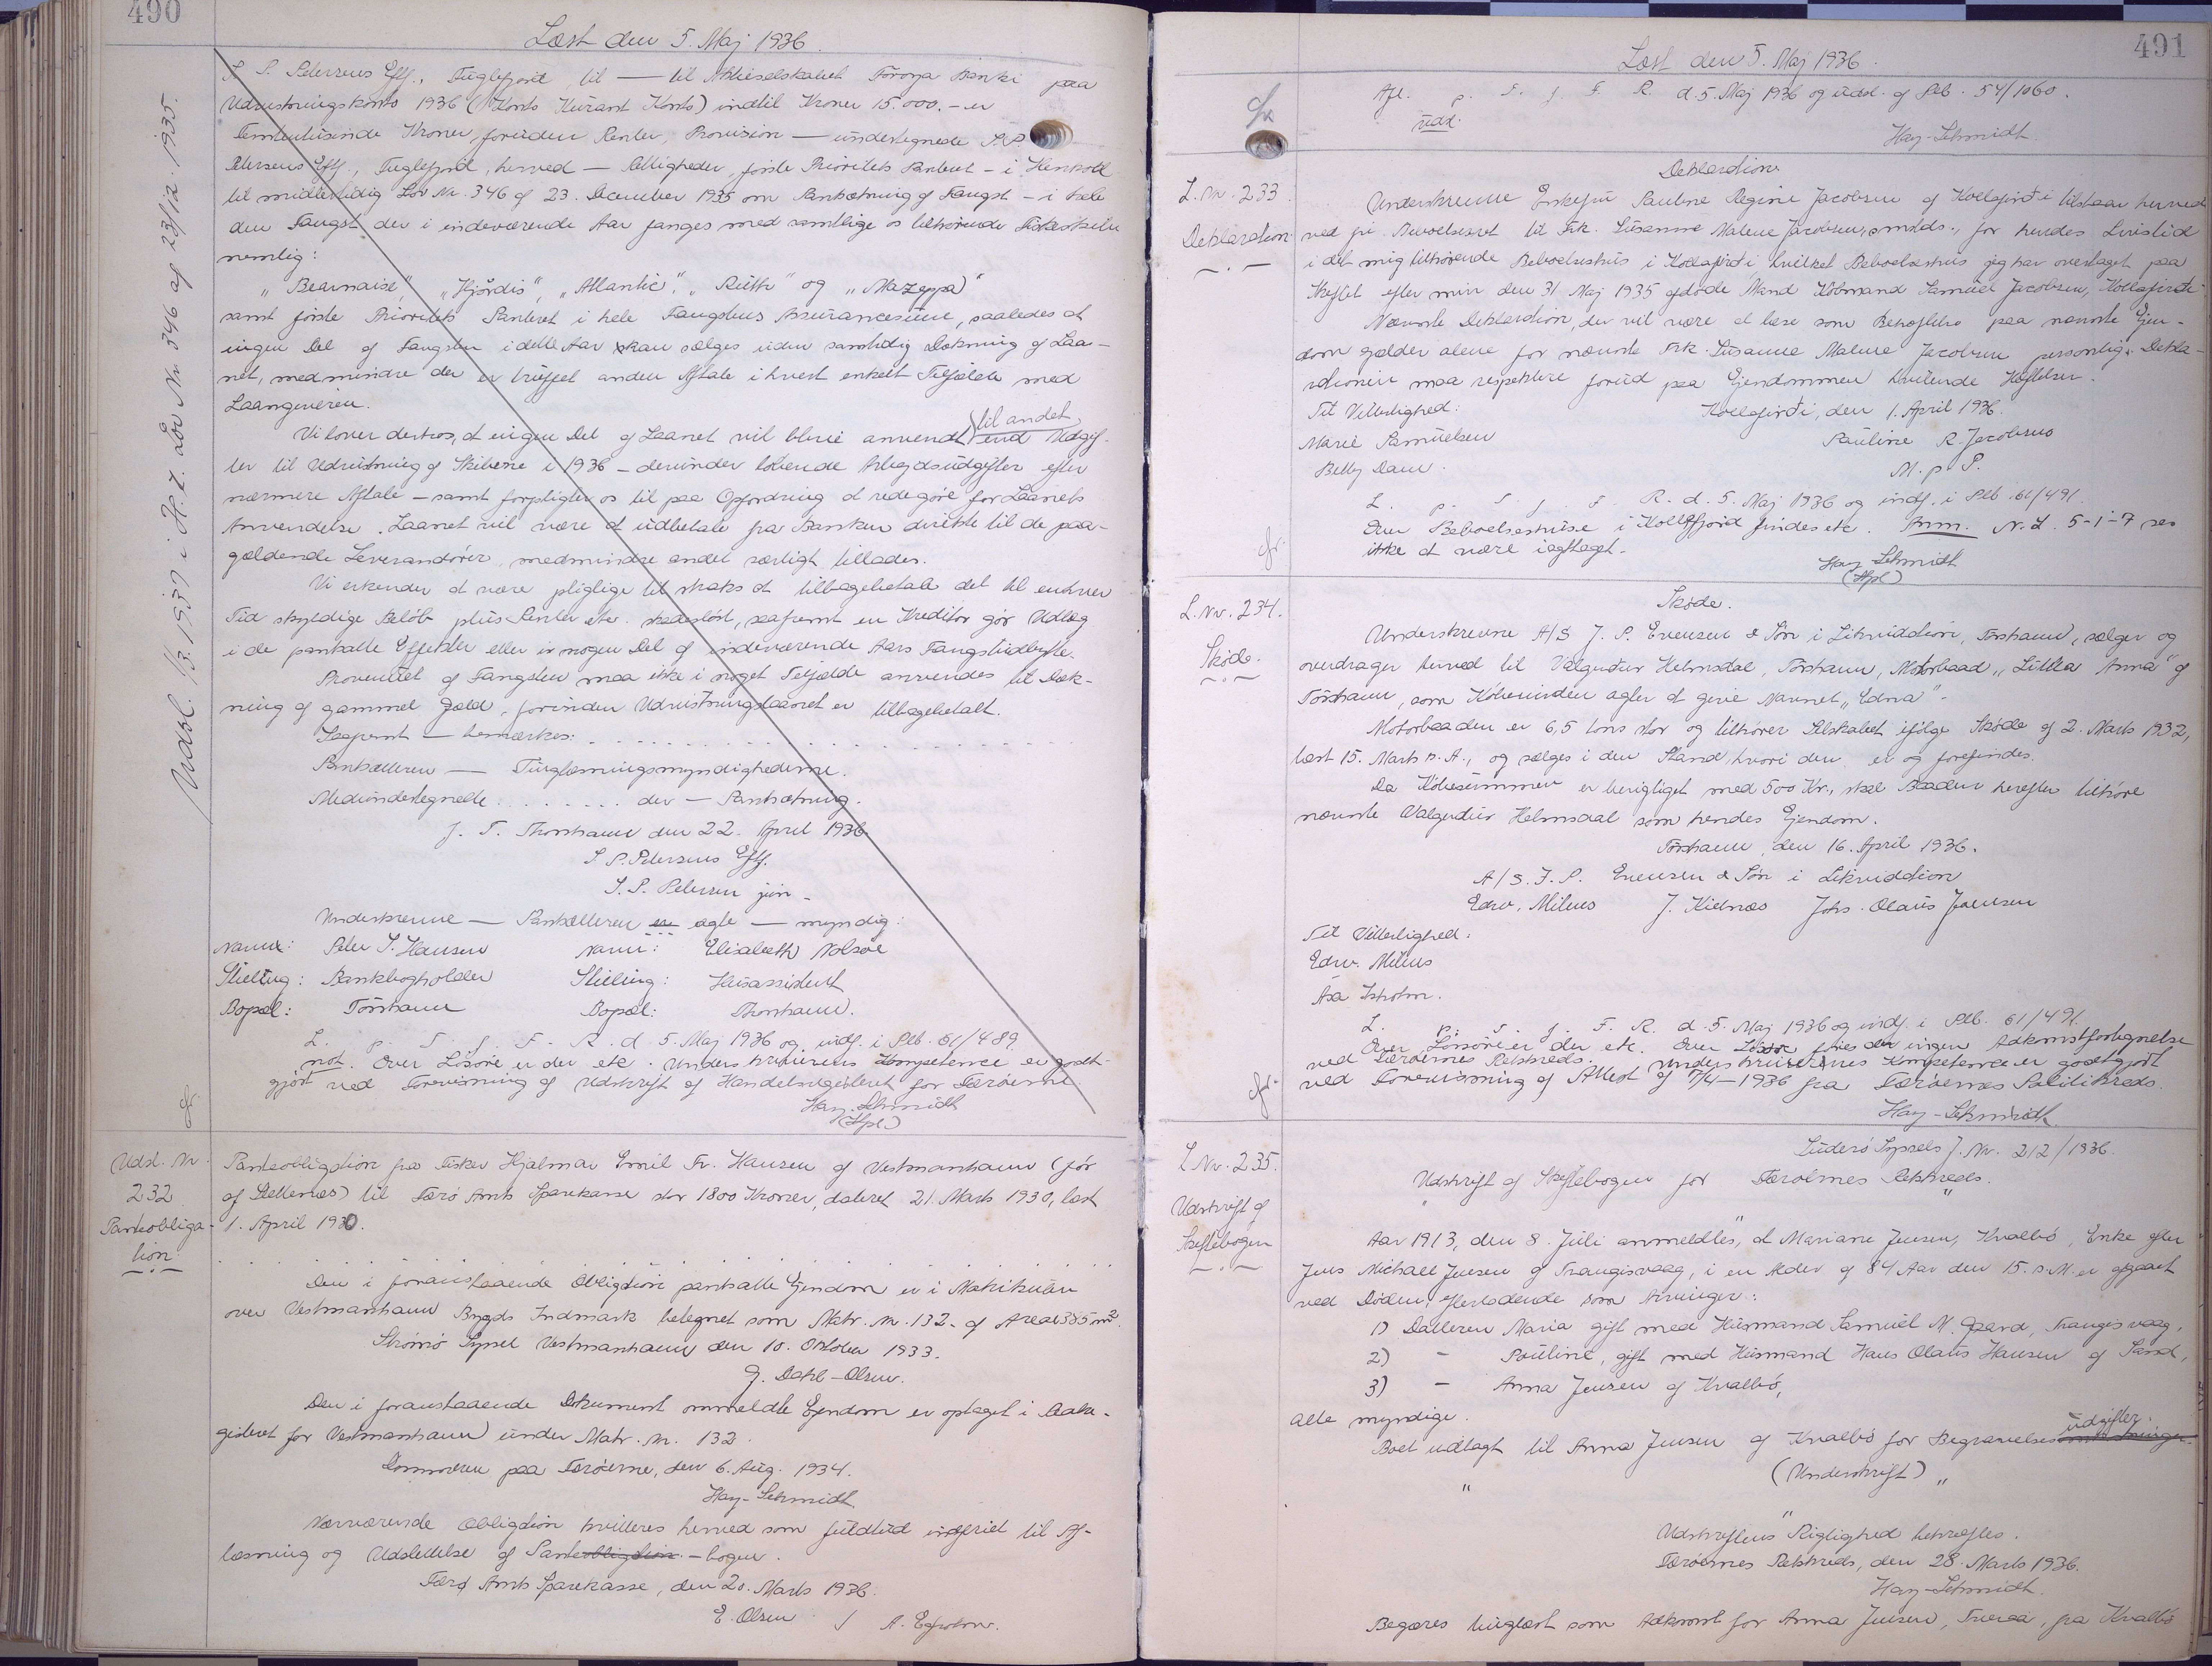 490
Læst den 5. Maj 1936.
S. P. Petersens Eftf., Fuglefjord til — til Aktieselskabet Føroya Banki paa
Udrustningskonto 1936 (Konto Kurant Konto) indtil Kroner 15.000.- er
Femtentusinde Kroner, foruden Renter, Provision — undertegnede S.P.
Petersens Eftf., Fuglefjord, herved — Rettigheder, første Prioritets Panteret - i Henhold
til midlertidig Lov Nr. 346 af 23. December 1935 om Pantsætning af Fangst - i hele
den Fangst, der i indeværende Aar fanges med samtlige os tilhørende Fiskeskibe
nemlig:
"Bearnaise", "Hjørdis", "Atlantic", "Ruth" og "Mazeppa"
samt første Prioritets Panteret i hele Fangstens Assurancesum, saaledes at
ingen Del af Fangsten i dette Aar kan sælges uden samtidig Dækning af Laa-
net, medmindre der er truffet anden Aftale i hvert enkelt Tilfælde med
Laangiveren.
Vi lover derhos, at ingen Del af Laanet vil blive anvendt til andet end Udgif-
ter til Udrustning af Skibene i 1936 - derunder løbende Arbejdsudgifter efter
nærmere Aftale - samt forpligter os til paa Opfordring at redegøre for Laanets
Anvendelse. Laanet vil være at udbetale fra Banken direkte til de paa-
gældende Leverandører, medmindre andet særligt tillades.
Vi erkender at være pligtige til straks at tilbagebetale det til enhver
Tid skyldige Beløb plus Renter etc. skadesløst, saafremt en Kreditor gør Udlæg
i de pantsatte Effekter eller i nogen Del af indeværende Aars Fangstudbytte.
Provenuet af Fangsten maa ikke i noget Tilfælde anvendes til Dæk-
ning af gammel Gæld, forinden Udrustningslaanet er tilbagebetalt.
Saafremt — bemærkes: . . . . . . . . . . . . . . . . . . .
Pantsætteren — Tinglæsningsmyndighederne.
Medundertegnede . . . . . . . der — Pantsætning.
J. F. Thorshavn den 22. April 1936.
S. P. Petersens Eftf.
S. P. Petersen jun.
Underskrevne — Pantsætteren er ægte — myndig:
Navn: Peter J. Hansen Navn: Elisabeth Nolsøe
Stilling: Bankbogholder Stilling: Husassistent
Bopæl: Tórshavn Bopæl: Thorshavn.
L. p. T. f. F. R. d. 5. Maj 1936 og indf. i Plb. 61/489
not. Over Løsøre er der etc. Underskriverens Kompetence er godt-
gjort ved Forevisning af Udskrift af Handelsregisteret for Færøerne.
Hay-Schmidt
(Hpl)
cfr.
Udsl. 1/3. 1937 i H. t. Lov Nr. 346 af 23/12. 1935.
Udsl. Nr.
232
Panteobliga-
tion
Panteobligation fra Fisker Hjalmar Emil Fr. Hansen af Vestmanhavn (før
af Slettenæs) til Færø Amts Sparekasse stor 1800 Kroner, dateret 21. Marts 1930, læst
1. April 1930.
. . . . . . . . . . . . . . . . . . .
Den i foranstaaende Obligation pantsatte Ejendom er i Matrikulen
over Vestmanhavn Bygds Indmark betegnet som Matr. Nr. 132. af Areal 385 m2.
Strømø Syssel Vestmanhavn den 10. Oktober 1933.
J. Dahl-Olsen.
Den i foranstaaende Dokument ommeldte Ejendom er optaget i Real-
gisteret for Vestmanhavn under Matr. Nr. 132.
Dommeren paa Færøerne, den 6. Aug. 1934.
Hay-Schmidt
Nærværende Obligation kvitteres herved som fuldtud indfriet til Af-
læsning og Udslettelse af Panteobligation - bogen.
Færø Amts Sparekasse, den 20. Marts 1936.
E. Olsen / A. Egholm.
491
Læst den 5. Maj 1936.
Afl. p. T. f. F. R. d. 5. Maj 1936 og udsl. af Plb. 54/1060.
udsl.
Hay-Schmidt
L. Nr. 233.
Deklaration
Deklaration
Underskrevne Enkefru Pauline Regine Jacobsen af Kollafirði tilstaar herved
ved fri Beboelsesret til Frk. Susanne Malene Jacobsen, smsteds., for hendes Livstid
i det mig tilhørende Beboelseshus i Kollafirði, hvilket Beboelseshus jeg har overtaget paa
Skiftet efter min den 31 Maj 1935 afdøde Mand Købmand Samuel Jacobsen, Kollafirði.
Nævnte Deklaration, der vil være at læse som Behæftelse paa nævnte Ejen-
dom gælder alene for nævnte Frk. Susanne Malene Jacobsen personlig. Dekla-
rationen maa respektere forud paa Ejendommen hvilende Hæftelser.
Til Vitterlighed: Kollafirði, den 1. April 1936.
Marie Samuelsen Pauline R. Jacobsen
Betty Dam. M. p. P.
L. p. T. f. F. R. d. 5. Maj 1936 og indf. i Plb 61/491.
Over Beboelseshuse i Kollefjord findes etc. Anm. N. L. 5-1-7 ses
ikke at være iagttaget.
Hay-Schmidt
(Hpl)
cfr.
L. Nr. 234.
Skøde.
Skøde.
Underskrevne A/S J. P. Evensen & Søn i Likvidation, Tórshavn, sælger og
overdrager herved til Valgerður Helmsdal, Tórshavn, Motorbaad "Littla Anna" af
Tórshavn, som Køberinden agter at give Navnet "Edna".
Motorbaaden er 6,5 tons stor og tilhører Selskabet ifølge Skøde af 2. Marts 1932,
læst 15. Marts s. A., og sælges i den Stand, hvori den er og forefindes.
Da Købesummen er berigtiget med 500 Kr., skal Baaden herefter tilhøre
nævnte Valgerður Helmsdal som hendes Ejendom.
Tórshavn, den 16. April 1936.
A/S. J. P. Evensen & Søn i Likvidation
Edw. Mitens J. Kjølnæs Johs. Olavus Joensen
Til Vitterlighed:
Edw. Mitens
Ása Isholm.
L. p. T. f. F. R. d. 5. Maj 1936 og indf. i Plb. 61/491.
Over Løsøre er der etc. Over Løsøre føres der ingen Adkomstfortegnelse
ved Færøernes Retskreds. Underskrivernes Kompetence er godtgjort
ved Forevisning af Attest af 17/4-1936 fra Færøernes Politikreds.
Hay-Schmidt
cfr.
L. Nr. 235.
Udskrift af
Skiftebogen
Suderø Syssels J. Nr. 212/1936.
Udskrift af Skiftebogen for Færøernes Retskreds.
Aar 1913, den 8. Juli anmeldtes, at Mariane Jensen, Kvalbø, Enke efter
Jens Michael Jensen af Trangisvaag, i en Alder af 84 Aar den 15. s. M. er afgaaet
ved Døden, efterladende som Arvinger:
1) Datteren Maria gift med Husmand Samuel N. Gaard, Trangisvaag,
2) - Pouline, gift med Husmand Hans Olavus Hansen af Sand,
3) - Anna Jensen af Kvalbø,
alle myndige.
Boet udlagt til Anna Jensen af Kvalbø for Begravelsesudgifter.
(Underskrift)
Udskriftens Rigtighed bekræftes.
Færøernes Retskreds, den 28. Marts 1936.
Hay-Schmidt.
Begæres tinglæst som Adkomst for Anna Jensen, Tveraa, fra Kvalbø